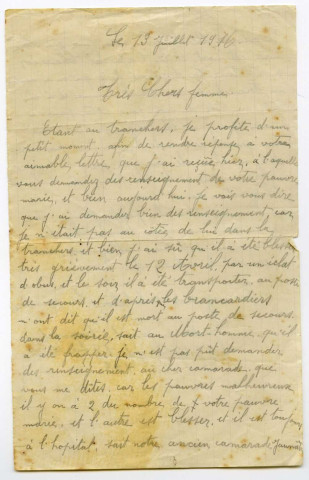 Les 13 juillet 1916
Très Chers femme
Etant au tranchers, je profite d'un
petit moment, afin de rendre réponse a votre
aimable, lettre, que j'ai reçue hiez, à laquelle
vous demandez des renseignement de votre pauvre
marie, et bien aujourd hui. Je vais vous dire
que j'ai demander bien des renseignement, car
Je n'était pas au côtés de lui dans la
tranchers, et bien j'ai sû qu'il a été bless
très grièvement le 12 Avril, par un eclat
d obus, et le soir il à été transporter, au poste
de secours, et d'après les brancardiers
m'ont dit qu'il est mort au poste de secours.
dans la soirée, sait au Mort-homme, qu'il
a été frapper. Je n'est pas pût demander
des renseignement, au cher camarade, que
vous me dites, car les pauvres malheureux
il y on à 2 du nombre, de votre pauvre
marie, et l'autre est blesser, et il est toujour
à l'hopital, sait notre ancien camarade